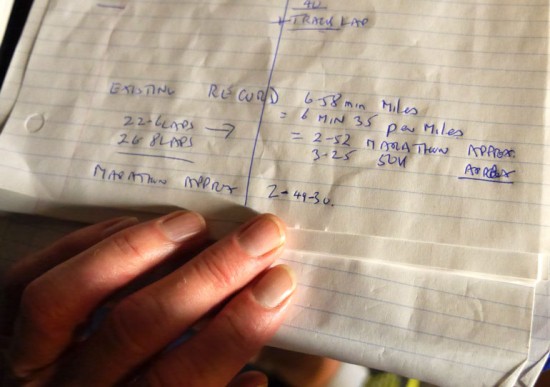 40
TRACK LAP
EXISTING RECORD 6-58 min Miles
= 6 MIN 35 per Miles
22.6 LAPS → = 2-52 MARATHON APPROX
26.8 LAPS 3-25 50K APPROX
MARATHON APPROX 2-49-30.